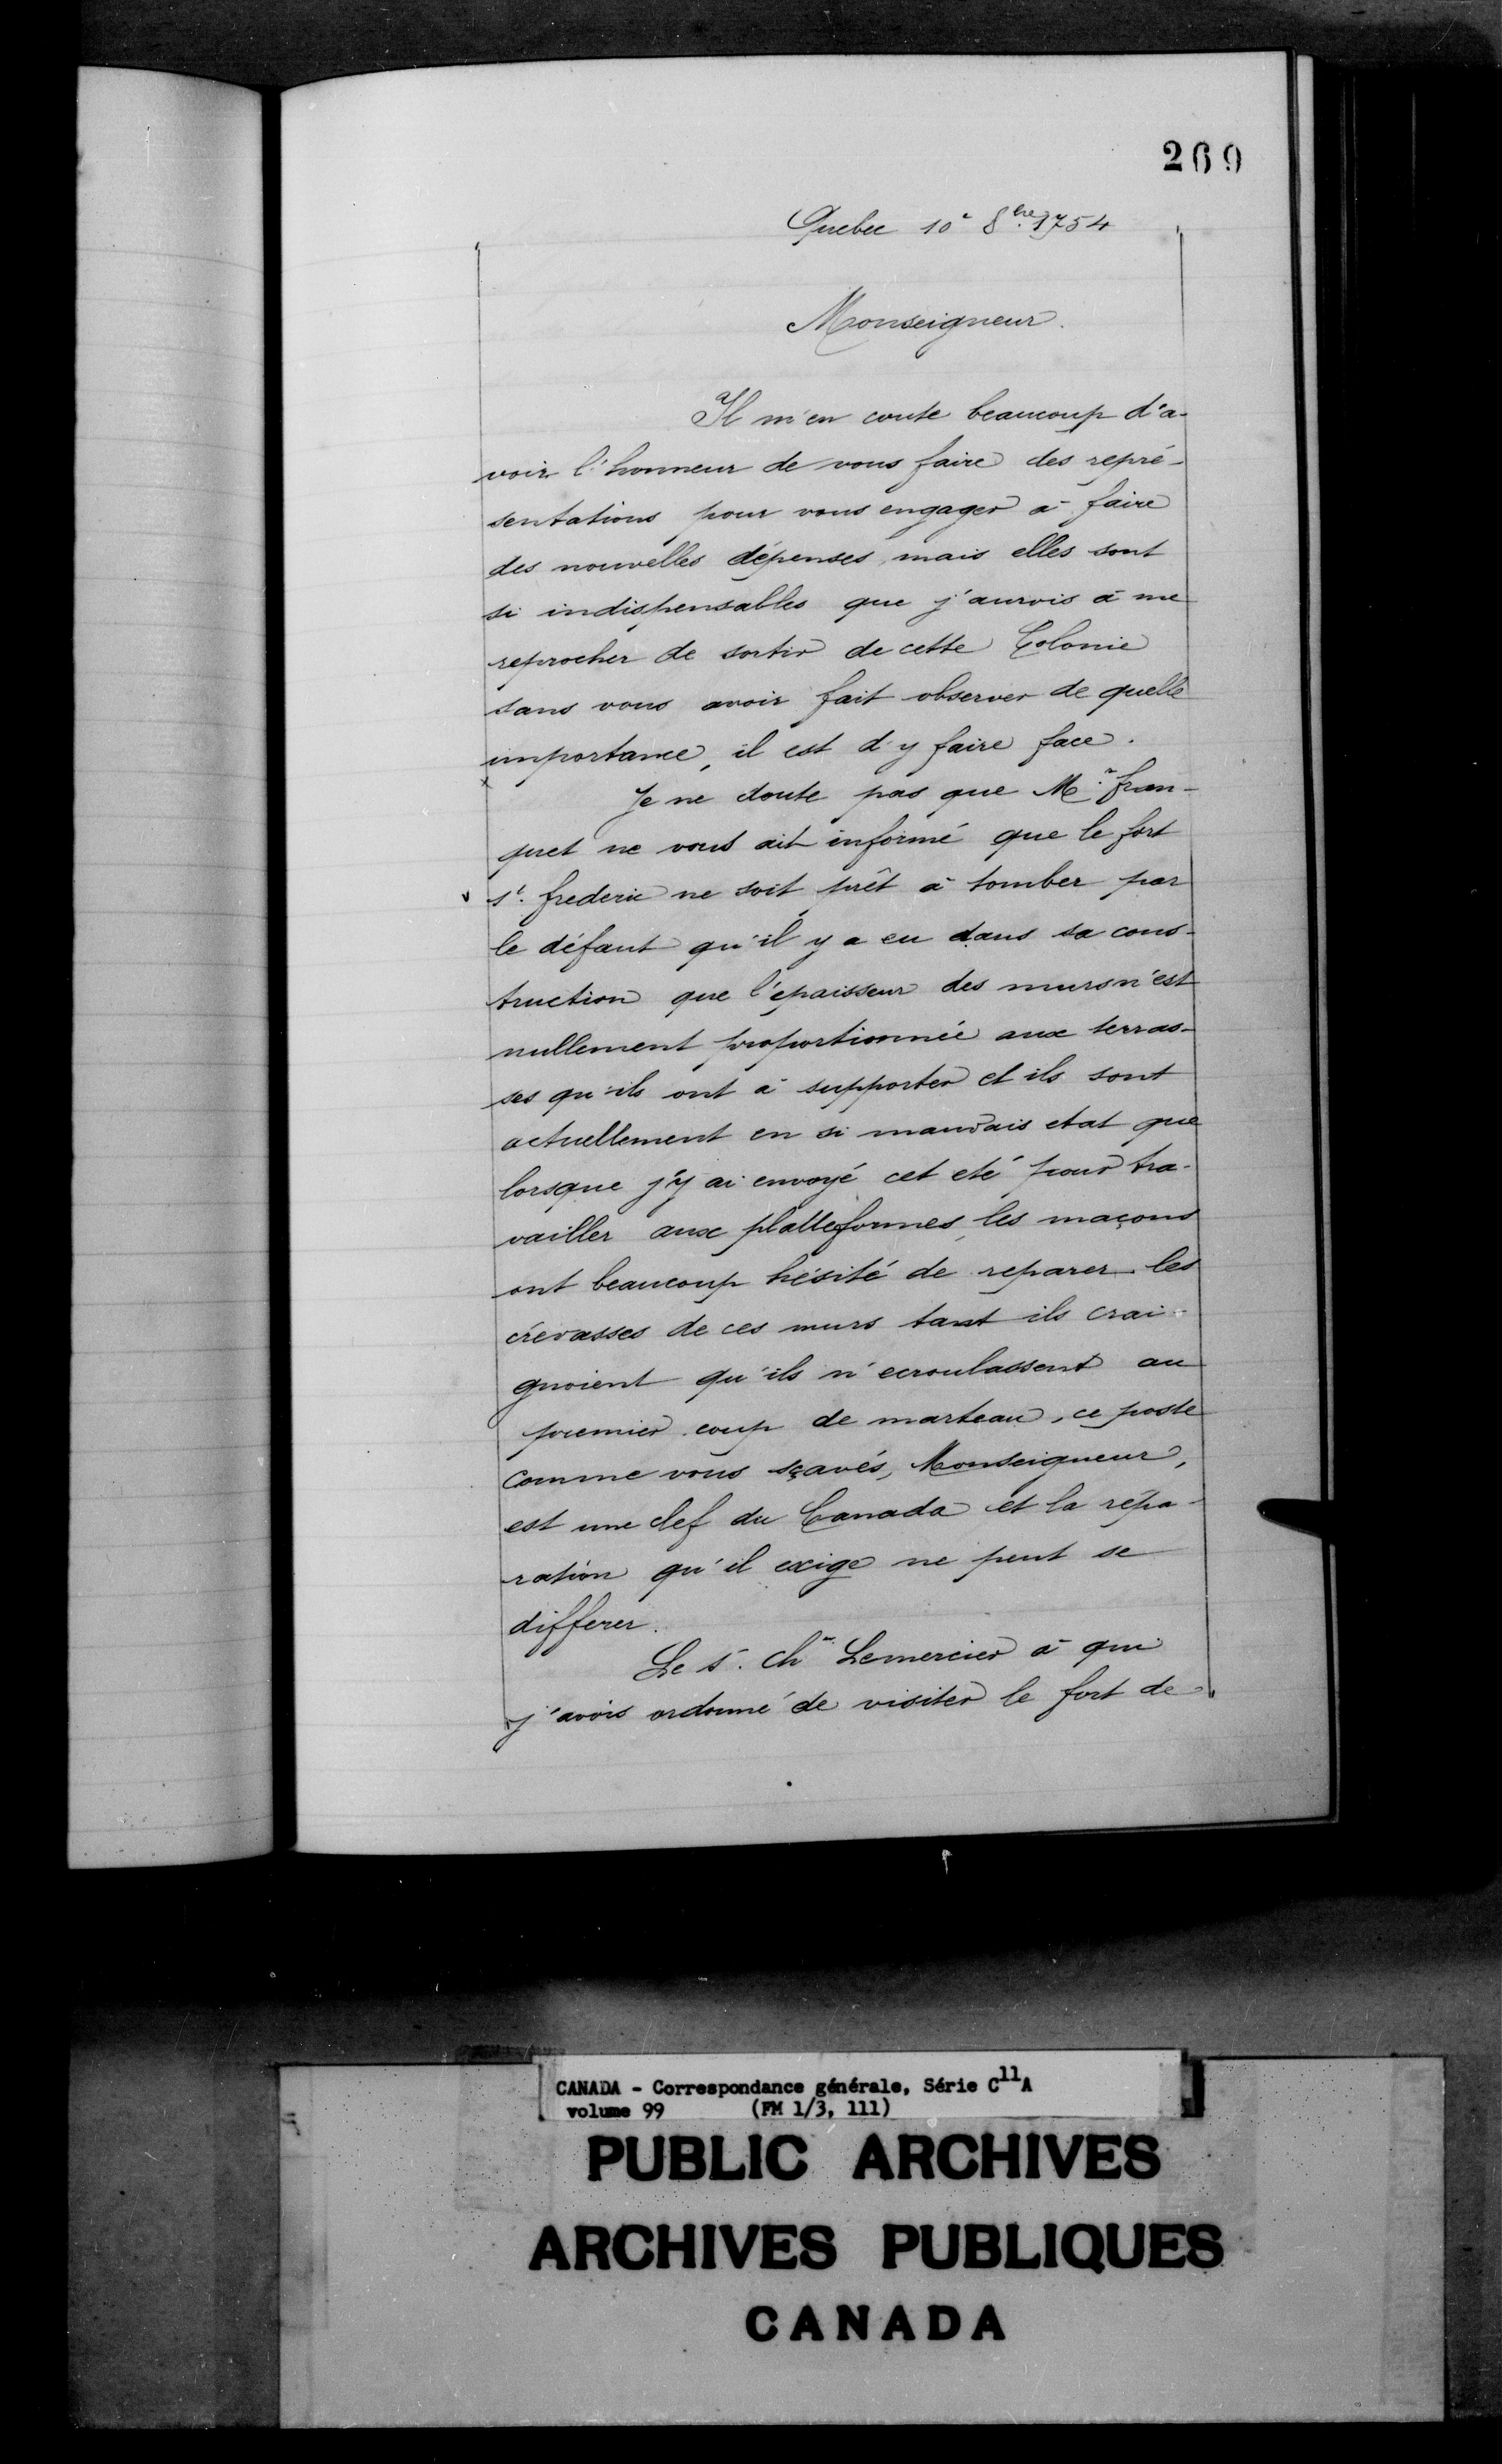 269
Quebec 10e 8bre 1754
Monseigneur.
Il m'en coute beaucoup d'a-
voir l'honneur de vous faire des repré-
sentations pour vous engager à faire
des nouvelles dépenses, mais elles sont
si indispensables que j'aurois à me
reprocher de sortir de cette Colonie
sans vous avoir fait observer de quelle
importance, il est d'y faire face.
Je ne doute pas que Mr. fran-
quet ne vous ait informé que le fort
st. frederic ne soit prêt à tomber par
le défaut qu'il y a eu dans sa cons-
truction que l'epaisseur des murs n'est
nullement proportionnée aux terras-
ses qu'ils ont à supporter et ils sont
actuellement en si mauvais etat que
lorsque j'y ai envoyé cet eté pour tra-
vailler aux platteformes, les maçons
ont beaucoup hésité de reparer les
crévasses de ces murs tant ils crai-
gnoient qu'ils n'ecroulassent au
premier coup de marteau, ce poste
comme vous sçavés, Monseigneur,
est une clef du Canada et la répa-
ration qu'il exige ne peut se
differer.
Le s. chr Lemercier à qui
j'avois ordonné de visiter le fort de
CANADA - Correspondance générale, Série C11A
volume 99 (FM 1/3, 111)
PUBLIC ARCHIVES
ARCHIVES PUBLIQUES
CANADA